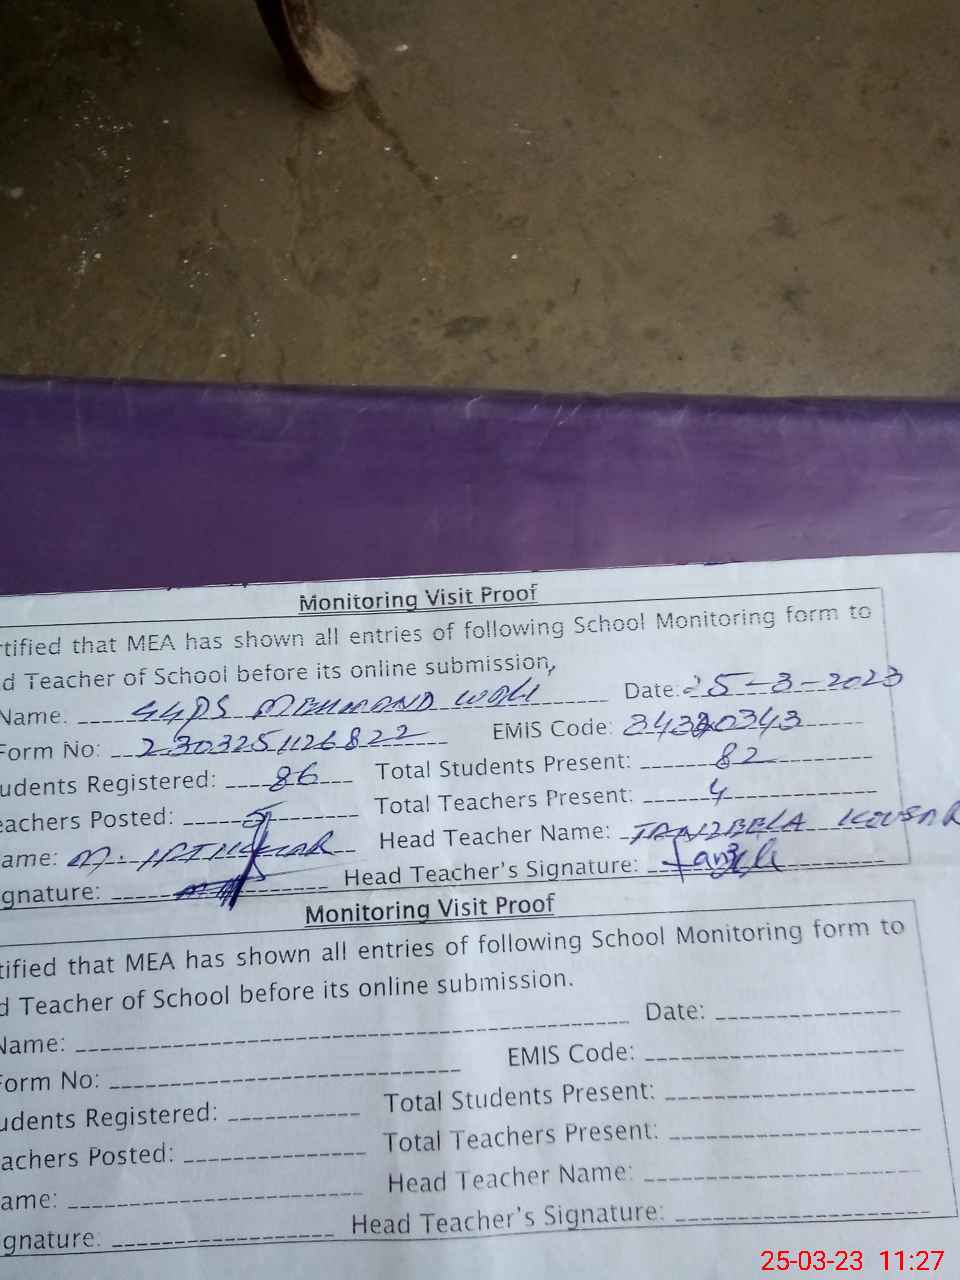 Monitoring Visit Proof
rtified that MEA has shown all entries of following School Monitoring form to
d Teacher of School before its online submission,
Name. GGPS MEHMAND WALI Date: 25-3-2023
Form No: 2303251126822 EMIS Code: 34320343
udents Registered: 86 Total Students Present: 82
eachers Posted: 5 Total Teachers Present: 4
ame: M. IFTIKHAR Head Teacher Name: TANZEELA KOUSAR
gnature: Head Teacher's Signature:
Monitoring Visit Proof
tified that MEA has shown all entries of following School Monitoring form to
d Teacher of School before its online submission.
Name: Date:
Form No: EMIS Code:
udents Registered: Total Students Present:
achers Posted: Total Teachers Present:
ame: Head Teacher Name:
gnature: Head Teacher's Signature:
25-03-23 11:27